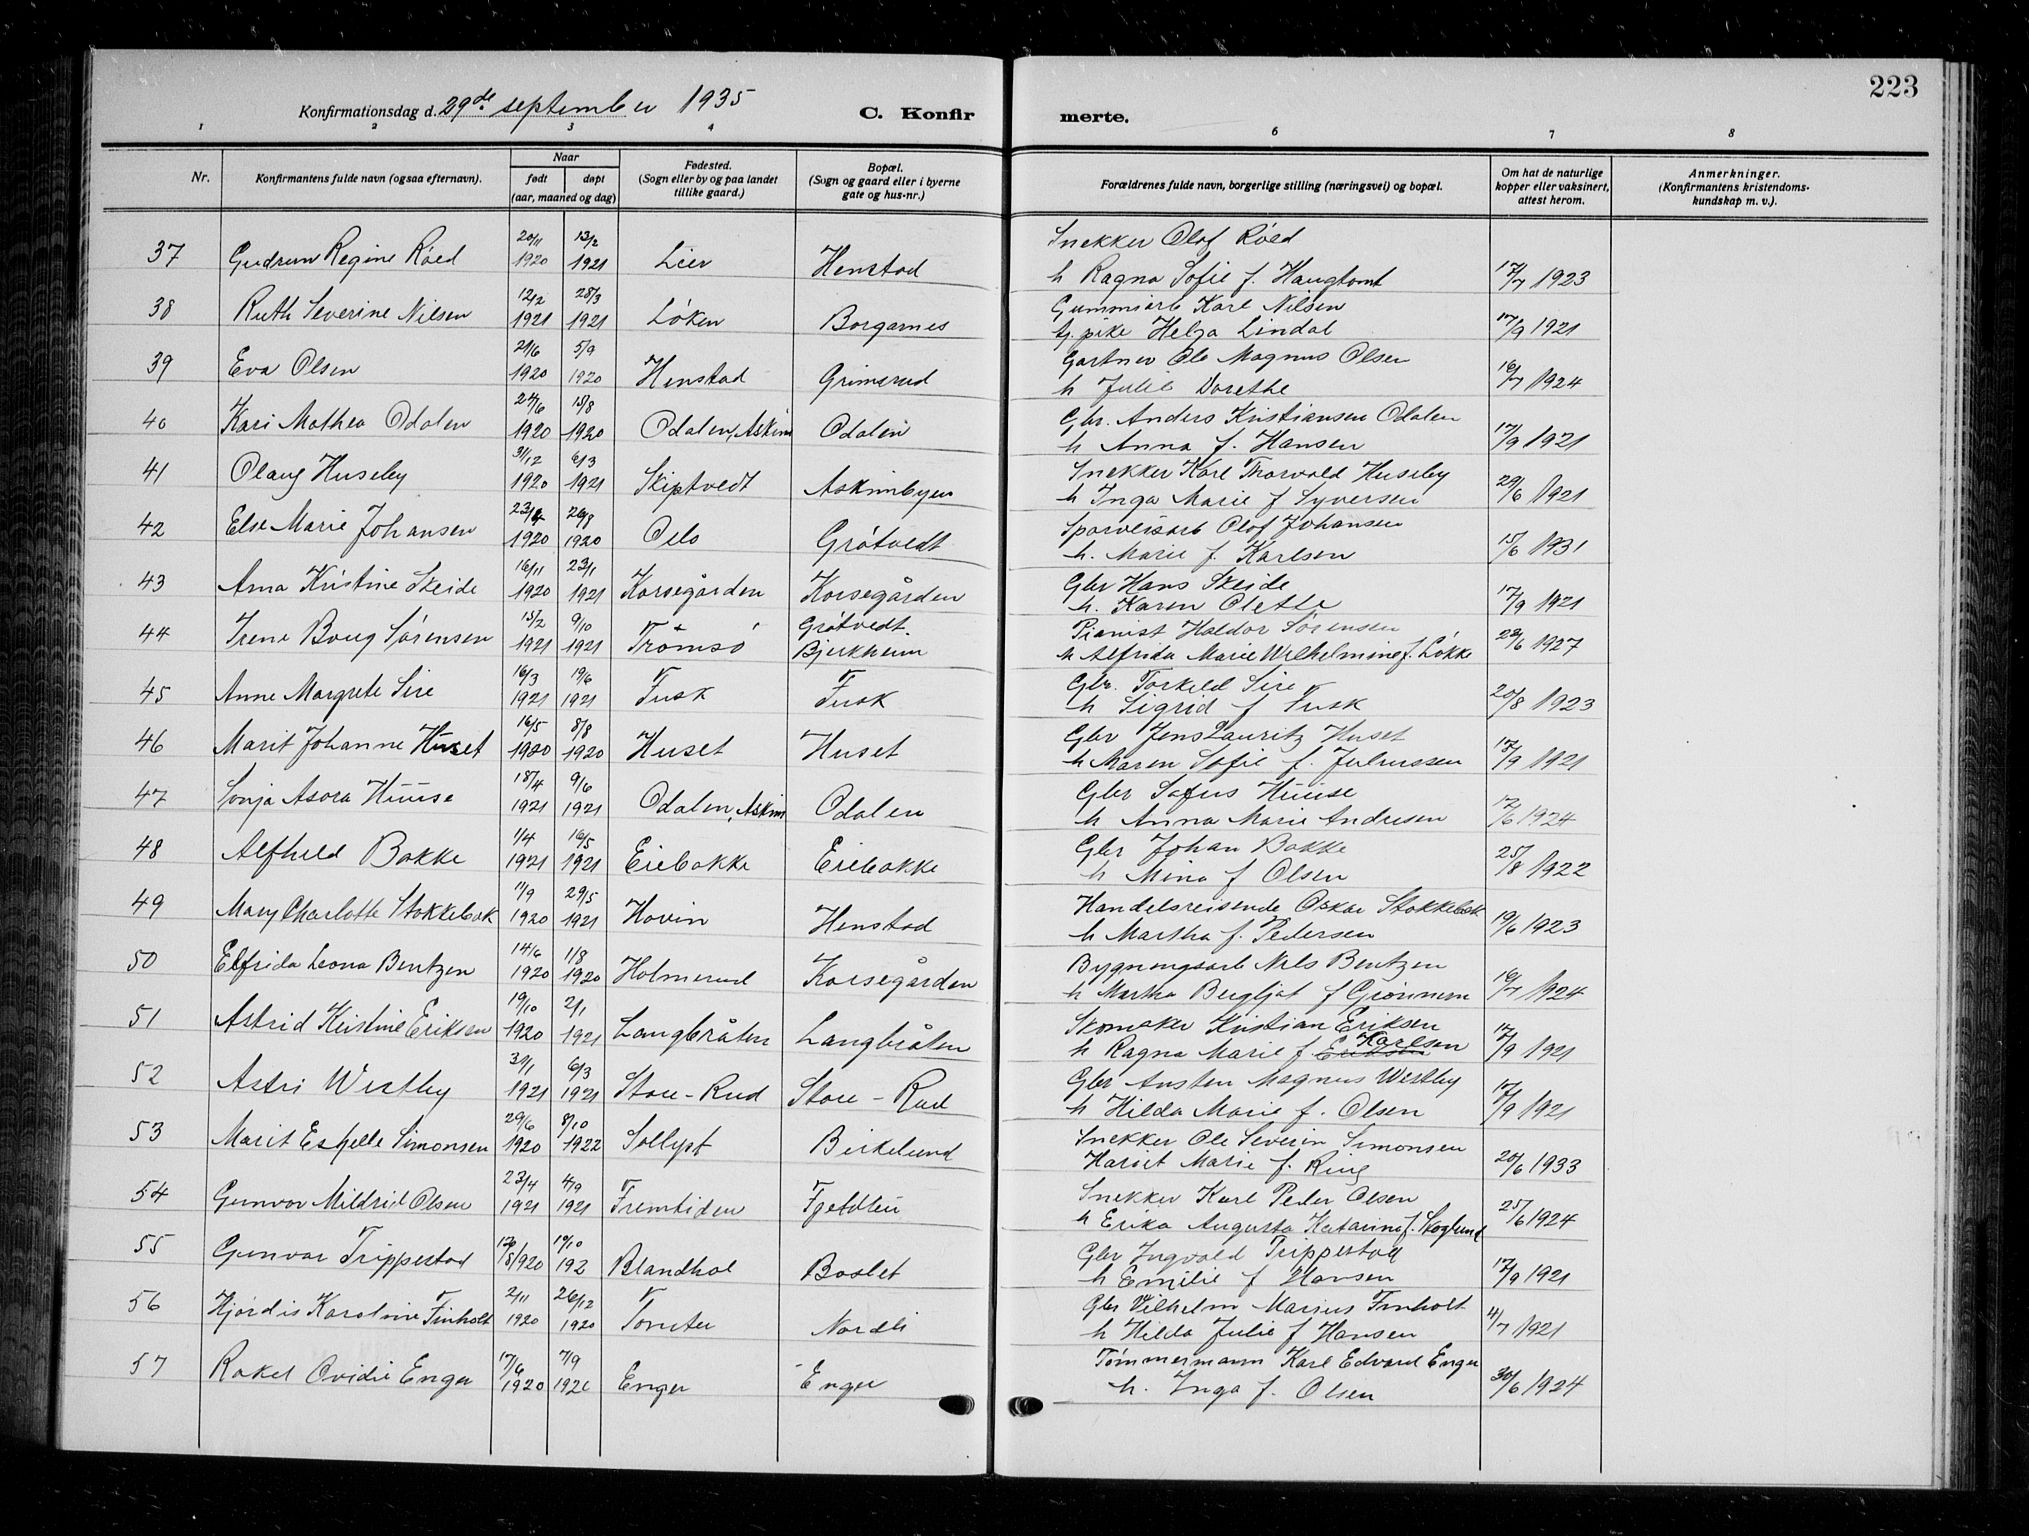 223
Konfirmationsdag d. 29de september 1935
C. Konfirmerte.
1 2 3 4 5 6 7 8
Nr.
Konfirmantens fulde navn (ogsaa efternavn).
Naar
født døpt
(aar, maaned og dag)
Fødested.
(Sogn eller by og paa landet
tillike gaard.)
Bopæl.
(Sogn og gaard eller i byerne
gate og hus-nr.)
Forældrenes fulde navn, borgerlige stilling (næringsvei) og bopæl.
Om hat de naturlige
kopper eller vaksinert,
attest herom.
Anmerkninger.
(Konfirmantens kristendoms-
kundskap m. v.).
37 Gudrun Regine Röed 20/11 1920 13/2 1921 Lier Henstad Snekker Olof Röed
h Ragna Sofie f. Haugtomt 17/7 1923
38 Ruth Severine Nilsen 12/2 1921 28/3 1921 Løken Borgarnes Gummiarb Karl Nilsen
tj. pike Helga Lindal 17/9 1921
39 Eva Olsen 21/6 1920 5/9 1920 Henstad Grimsrud Gartner Ole Magnus Olsen
h Julie Dorethe 16/7 1924
40 Kari Mathea Odalen 24/6 1920 15/8 1920 Odalen, Askim Odalen Gbr. Anders Kristiansen Odalen
h Anna f. Hansen 17/9 1921
41 Olaug Huseby 31/12 1920 6/3 1921 Skiptvedt Askimbyen Snekker Karl Thorvald Huseby
h Inga Marie f Syversen 29/6 1921
42 Else Marie Johansen 23/4 1920 26/8 1920 Oslo Grötvedt Sporveisarb Olof Johansen
h. Marie f. Karlsen 15/6 1931
43 Anna Kristine Skeide 16/11 1920 23/1 1921 Korsegården Korsegården Gbr Hans Skeide
h. Karen Olette 17/9 1921
44 Irene Boug Sørensen 15/2 1921 9/10 1921 Trömsö Grötvedt. Bjerkheim Pianist Haldor Sørensen
h Alfrida Marie Wilhelmine f. Løkke 28/6 1927
45 Anne Margrete Sire 16/3 1921 19/6 1921 Fusk Fusk Gbr. Torkild Sire
h Sigrid f Fusk 20/8 1923
46 Marit Johanne Huset 16/5 1920 8/8 1920 Huset Huset Gbr Jens Lauritz Huset
h Maren Sofie f. Juliussen 17/9 1921
47 Sonja Asora Huuse 18/4 1921 9/6 1921 Odalen, Askim Odalen Gbr Sofus Huuse
h Anna Marie Andresen 12/6 1924
48 Alfhild Bakke 1/4 1921 16/5 1921 Eiebakke Eiebakke Gbr Johan Bakke
h Mina f Olsen 25/8 1922
49 Mary Charlotte Stokkebæk 11/9 1920 29/5 1921 Hovin Henstad Handelsreisende Oskar Stokkebæk
h Martha f. Pedersen 19/6 1923
50 Elfrida Leona Bentzen 14/6 1920 1/8 1920 Holmerud Korsegården Bygningsarb Nils Bentzen
h Martha Bergljot f 16/7 1924
51 Astrid Kristine Eriksen 19/10 1920 2/1 1921 Langbråten Langbråten Skomaker Kristian Eriksen
h Ragna Marie f Eriksen Karlsen 17/9 1921
52 Astri Westby 31/1 1921 6/3 1921 Store-Rud Store-Rud Gbr Austen Magnus Westby
h Hilda Marie f. Olsen 17/9 1921
53 Marit Estelle Simonsen 29/6 1920 8/10 1922 Sollyst Birkelund Snekker Ole Severin Simonsen
Harriet Marie f. Ring 20/6 1933
54 Gunvor Mildrid Olsen 23/4 1921 4/9 1921 Fremtiden Fjeldtun Snekker Karl Peder Olsen
h Erika Augusta Katarina f. Skoglund 25/6 1924
55 Gunvor Trippestad 1920 10/10 192 Blandhol Baslet Gbr Ingvald Trippestad
h Emilie f Hansen 17/9 1921
56 Hjördis Karoline Finholt 2/11 1920 26/12 1920 Tomter Nordli Gbr Vilhelm Marius Finholt
h Hilda Julie f Hansen 4/7 1921
57 Rakel Ovidie Enger 17/6 1920 7/9 192 Enger Enger Tömmermann Karl Edvard Enger
h. Inga f. Olsen 30/6 1924